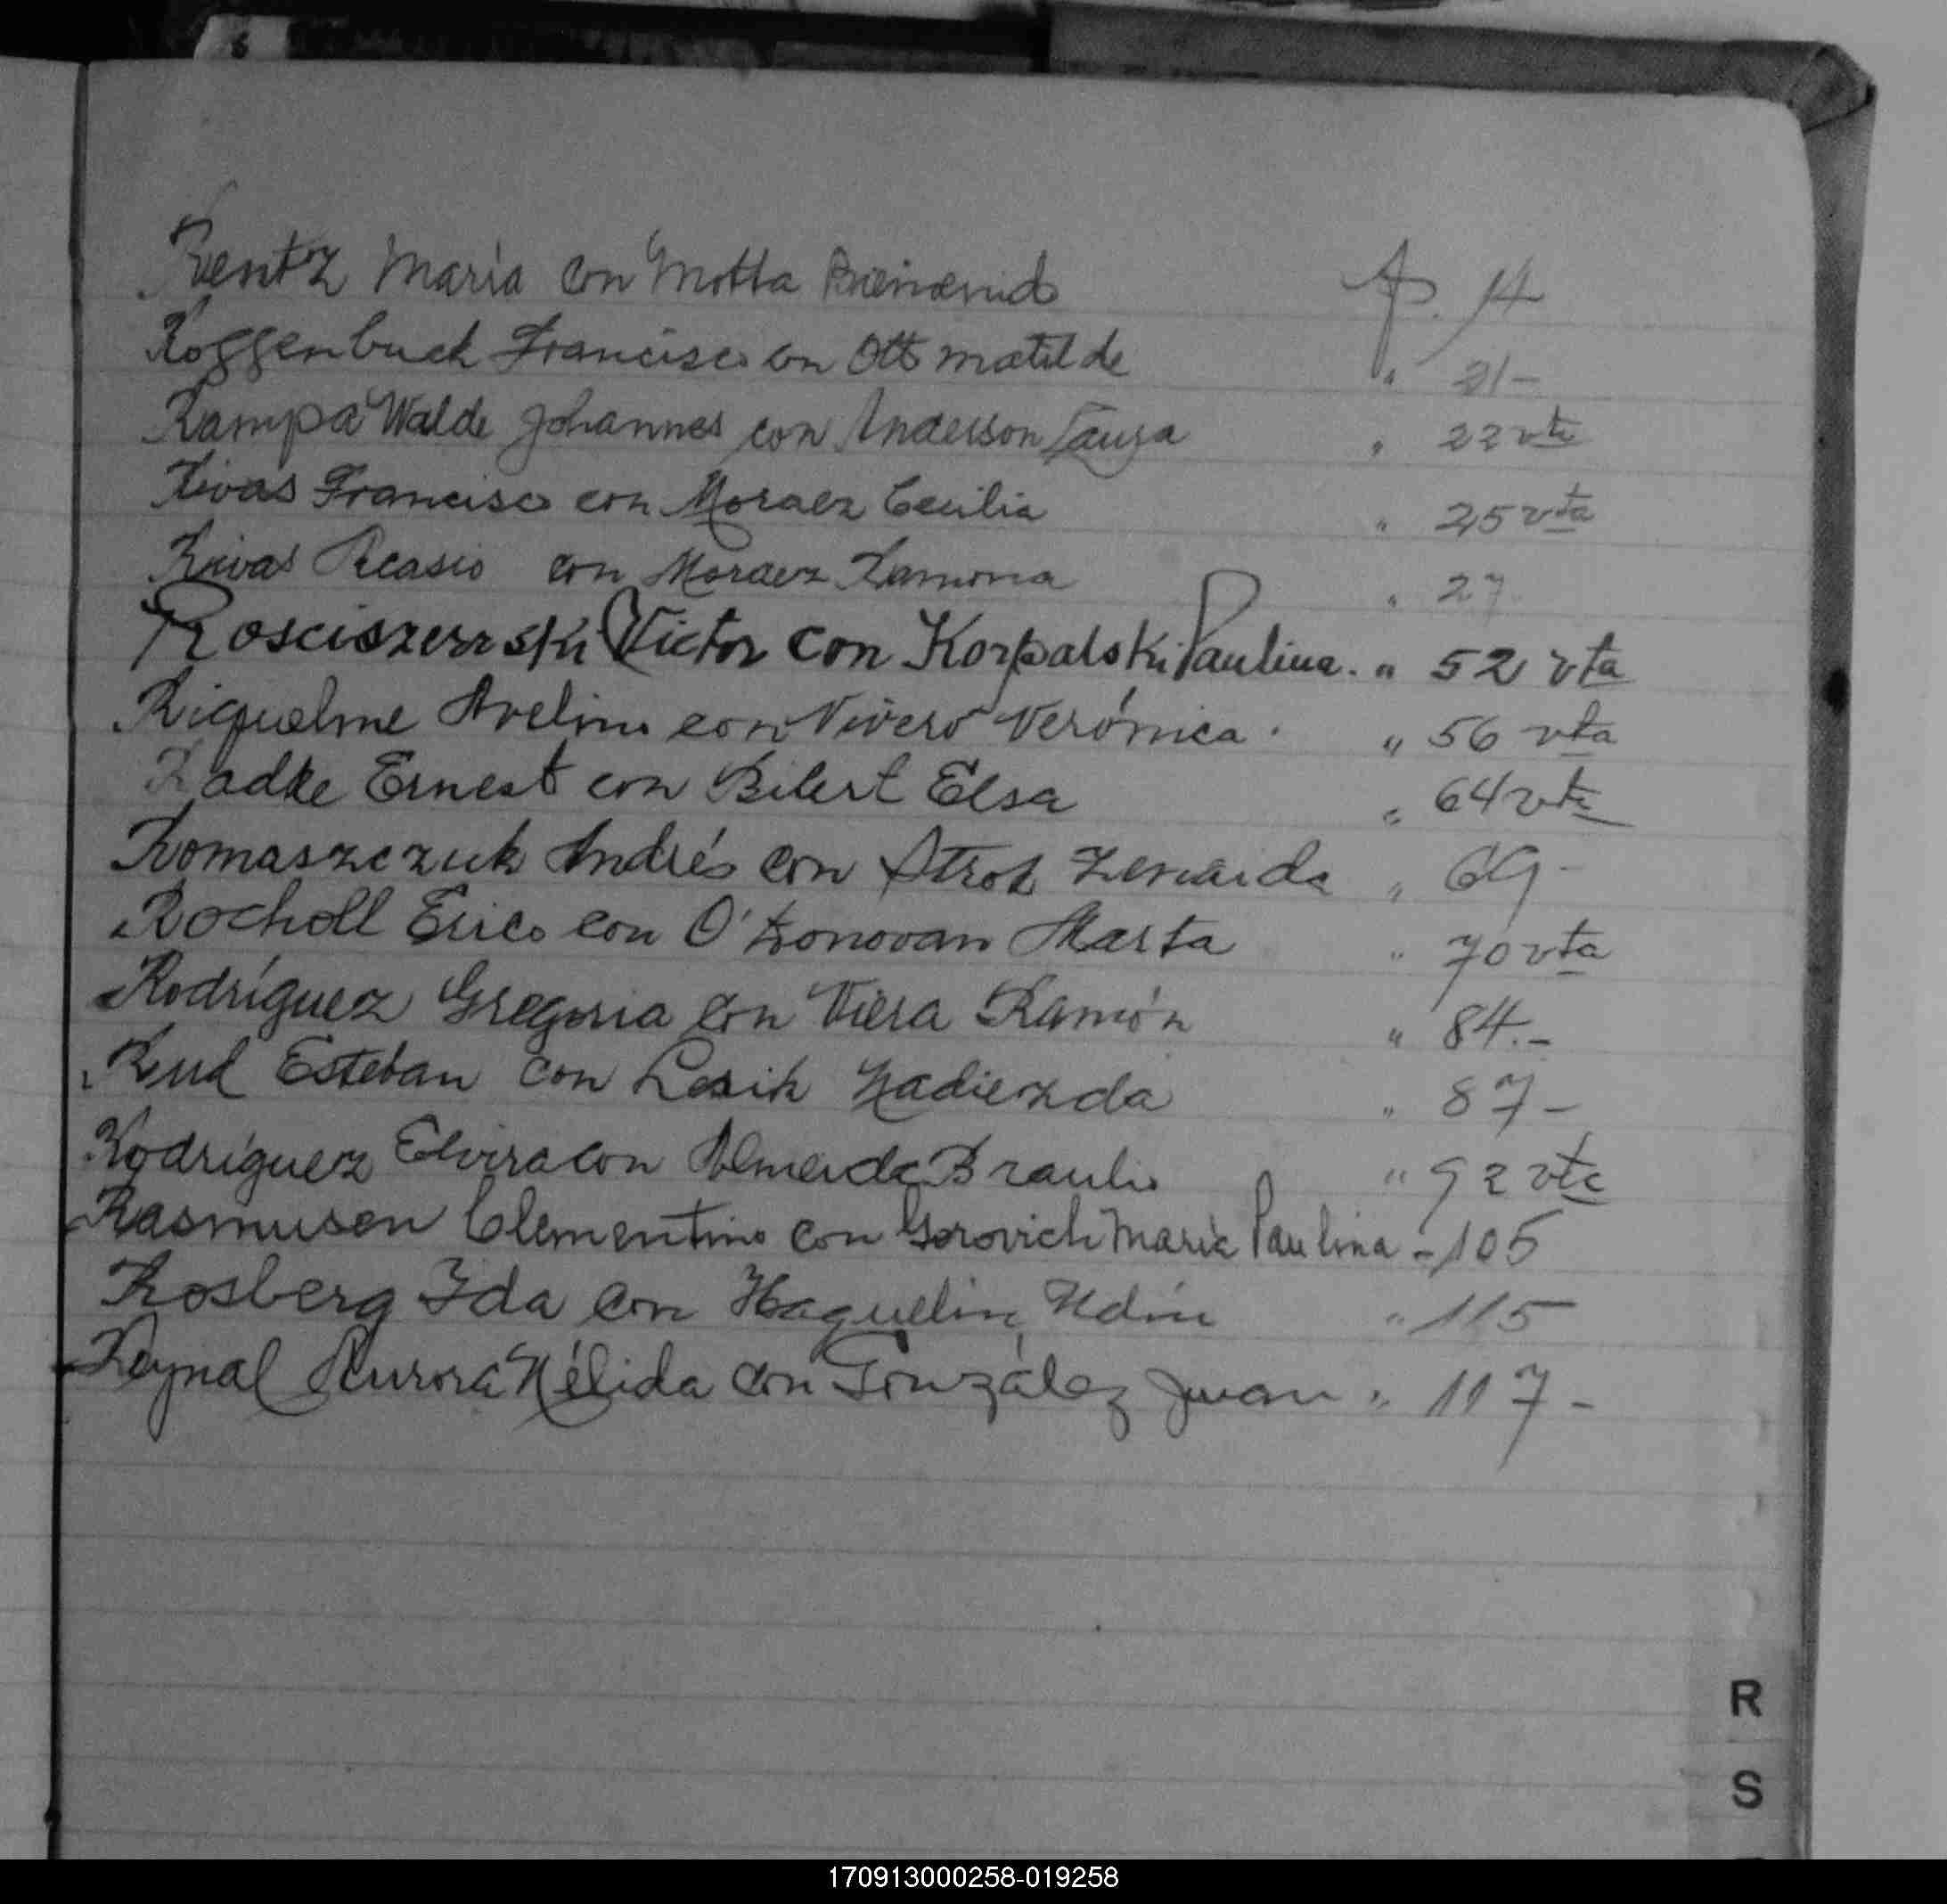 6
Rentz María con Motta Bienvenido p. 14
Roggenbuck Francisco con Otto Matilde " 21-
Rampa Walde Johannes con Anderson Laura " 22 vta
Rivas Francisco con Moraez Cecilia " 25 vta
Rivas con Moraez Ramona " 27
Rosciszerrski Victor con Korpalski Paulina. " 52 vta
Riquelme Avelino con Vivero Verónica. " 56 vta
Radke Ernest con Bilert Elsa " 64 vta
Romaszczuk Andrés con Zenaida " 69-
Rocholl Erico con O'Donovan Marta " 70 vta
Rodríguez Gregoria con Viera Ramón " 84.-
Rud Esteban con Lesik Nadiezda " 87-
Rodríguez Elvira con Almeida Braulio " 92 vta
Rasmusen Clementino con Gorovich María Paulina - 105
Rosberg Ida con Haquelin " 115
Reynal Aurora Nélida con González Juan " 117-
R
S
170913000258-019258